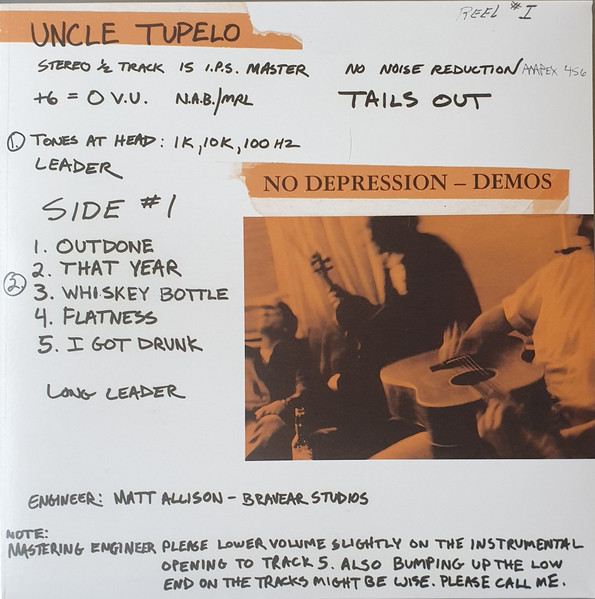 REEL #1
UNCLE TUPELO
STEREO ½ TRACK 15 I.P.S. MASTER
NO NOISE REDUCTION AMPEX 456
+6 = 0 V.U. N.A.B./MRL
TAILS OUT
1. TONES AT HEAD: 1K, 10K, 100 HZ
LEADER
NO DEPRESSION – DEMOS
SIDE #1
1. OUTDONE
2. THAT YEAR
2. 3. WHISKEY BOTTLE
4. FLATNESS
5. I GOT DRUNK
LONG LEADER
ENGINEER: MATT ALLISON – BRAVEAR STUDIOS
NOTE:
MASTERING ENGINEER PLEASE LOWER VOLUME SLIGHTLY ON THE INSTRUMENTAL
OPENING TO TRACK 5. ALSO BUMPING UP THE LOW
END ON THE TRACKS MIGHT BE WISE. PLEASE CALL ME.